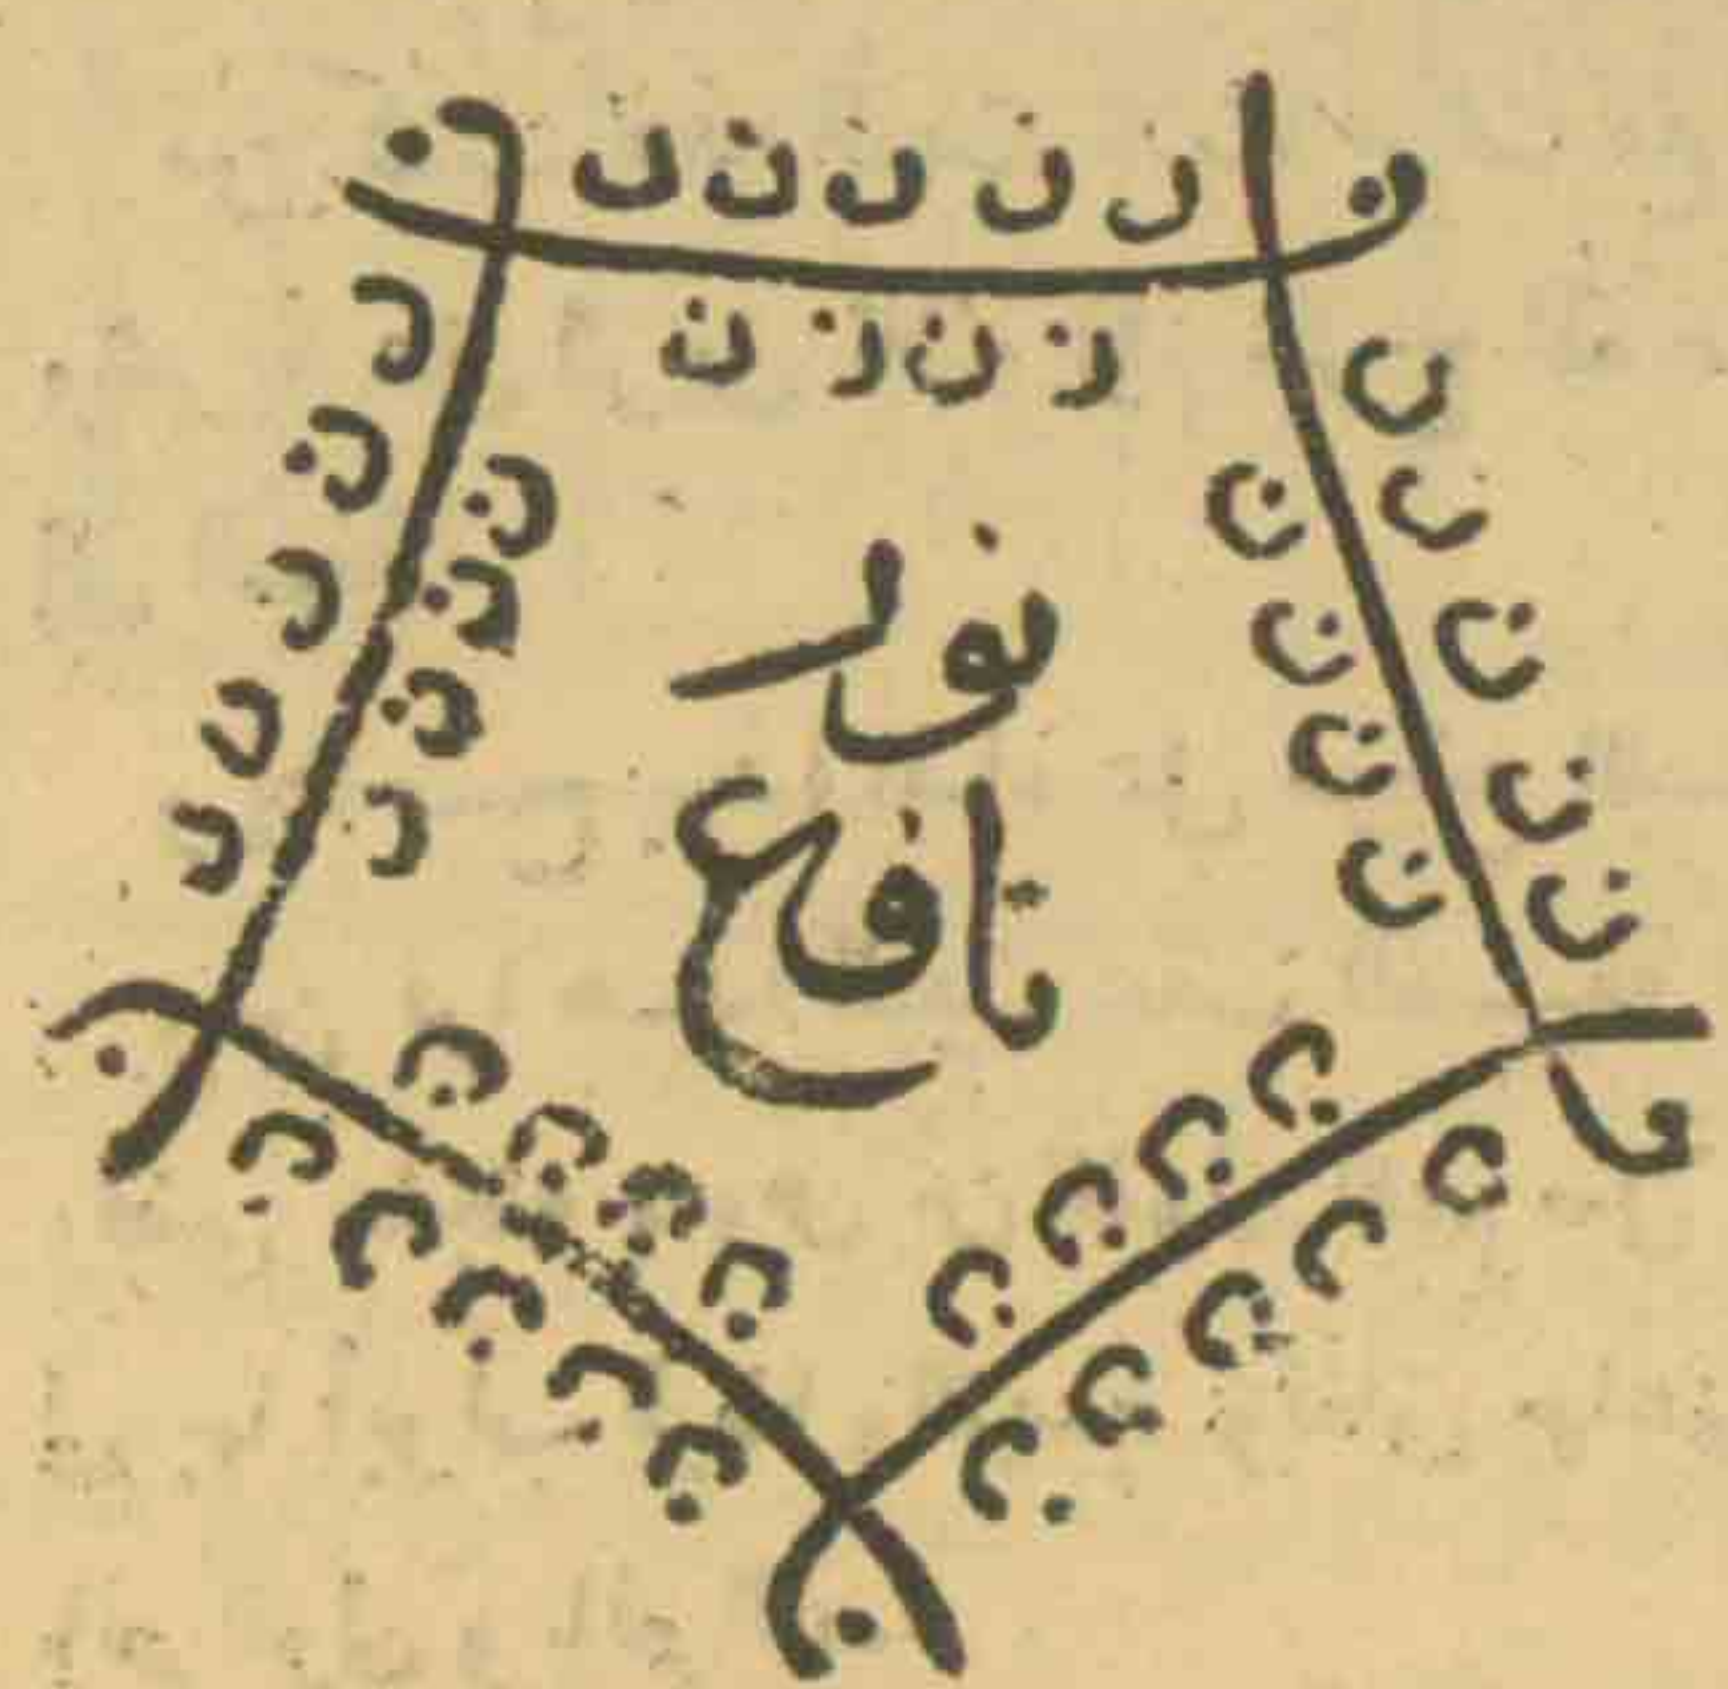 ن ن ن ن ن
ن ن ن ن
ن ن ن ن ن
ن ن ن ن
ن ن ن ن ن
ن ن ن ن
نور
نافع
ن ن ن ن
ن ن ن ن ن
ن ن ن ن
ن ن ن ن ن